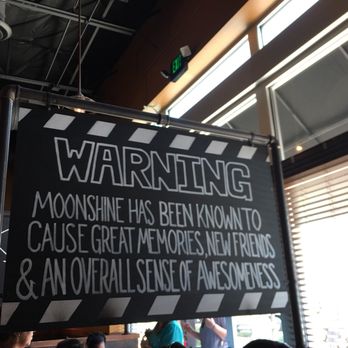 EXIT
WARNING
MOONSHINE HAS BEEN KNOWN TO
CAUSE GREAT MEMORIES, NEW FRIENDS
& AN OVERALL SENSE OF AWESOMENESS